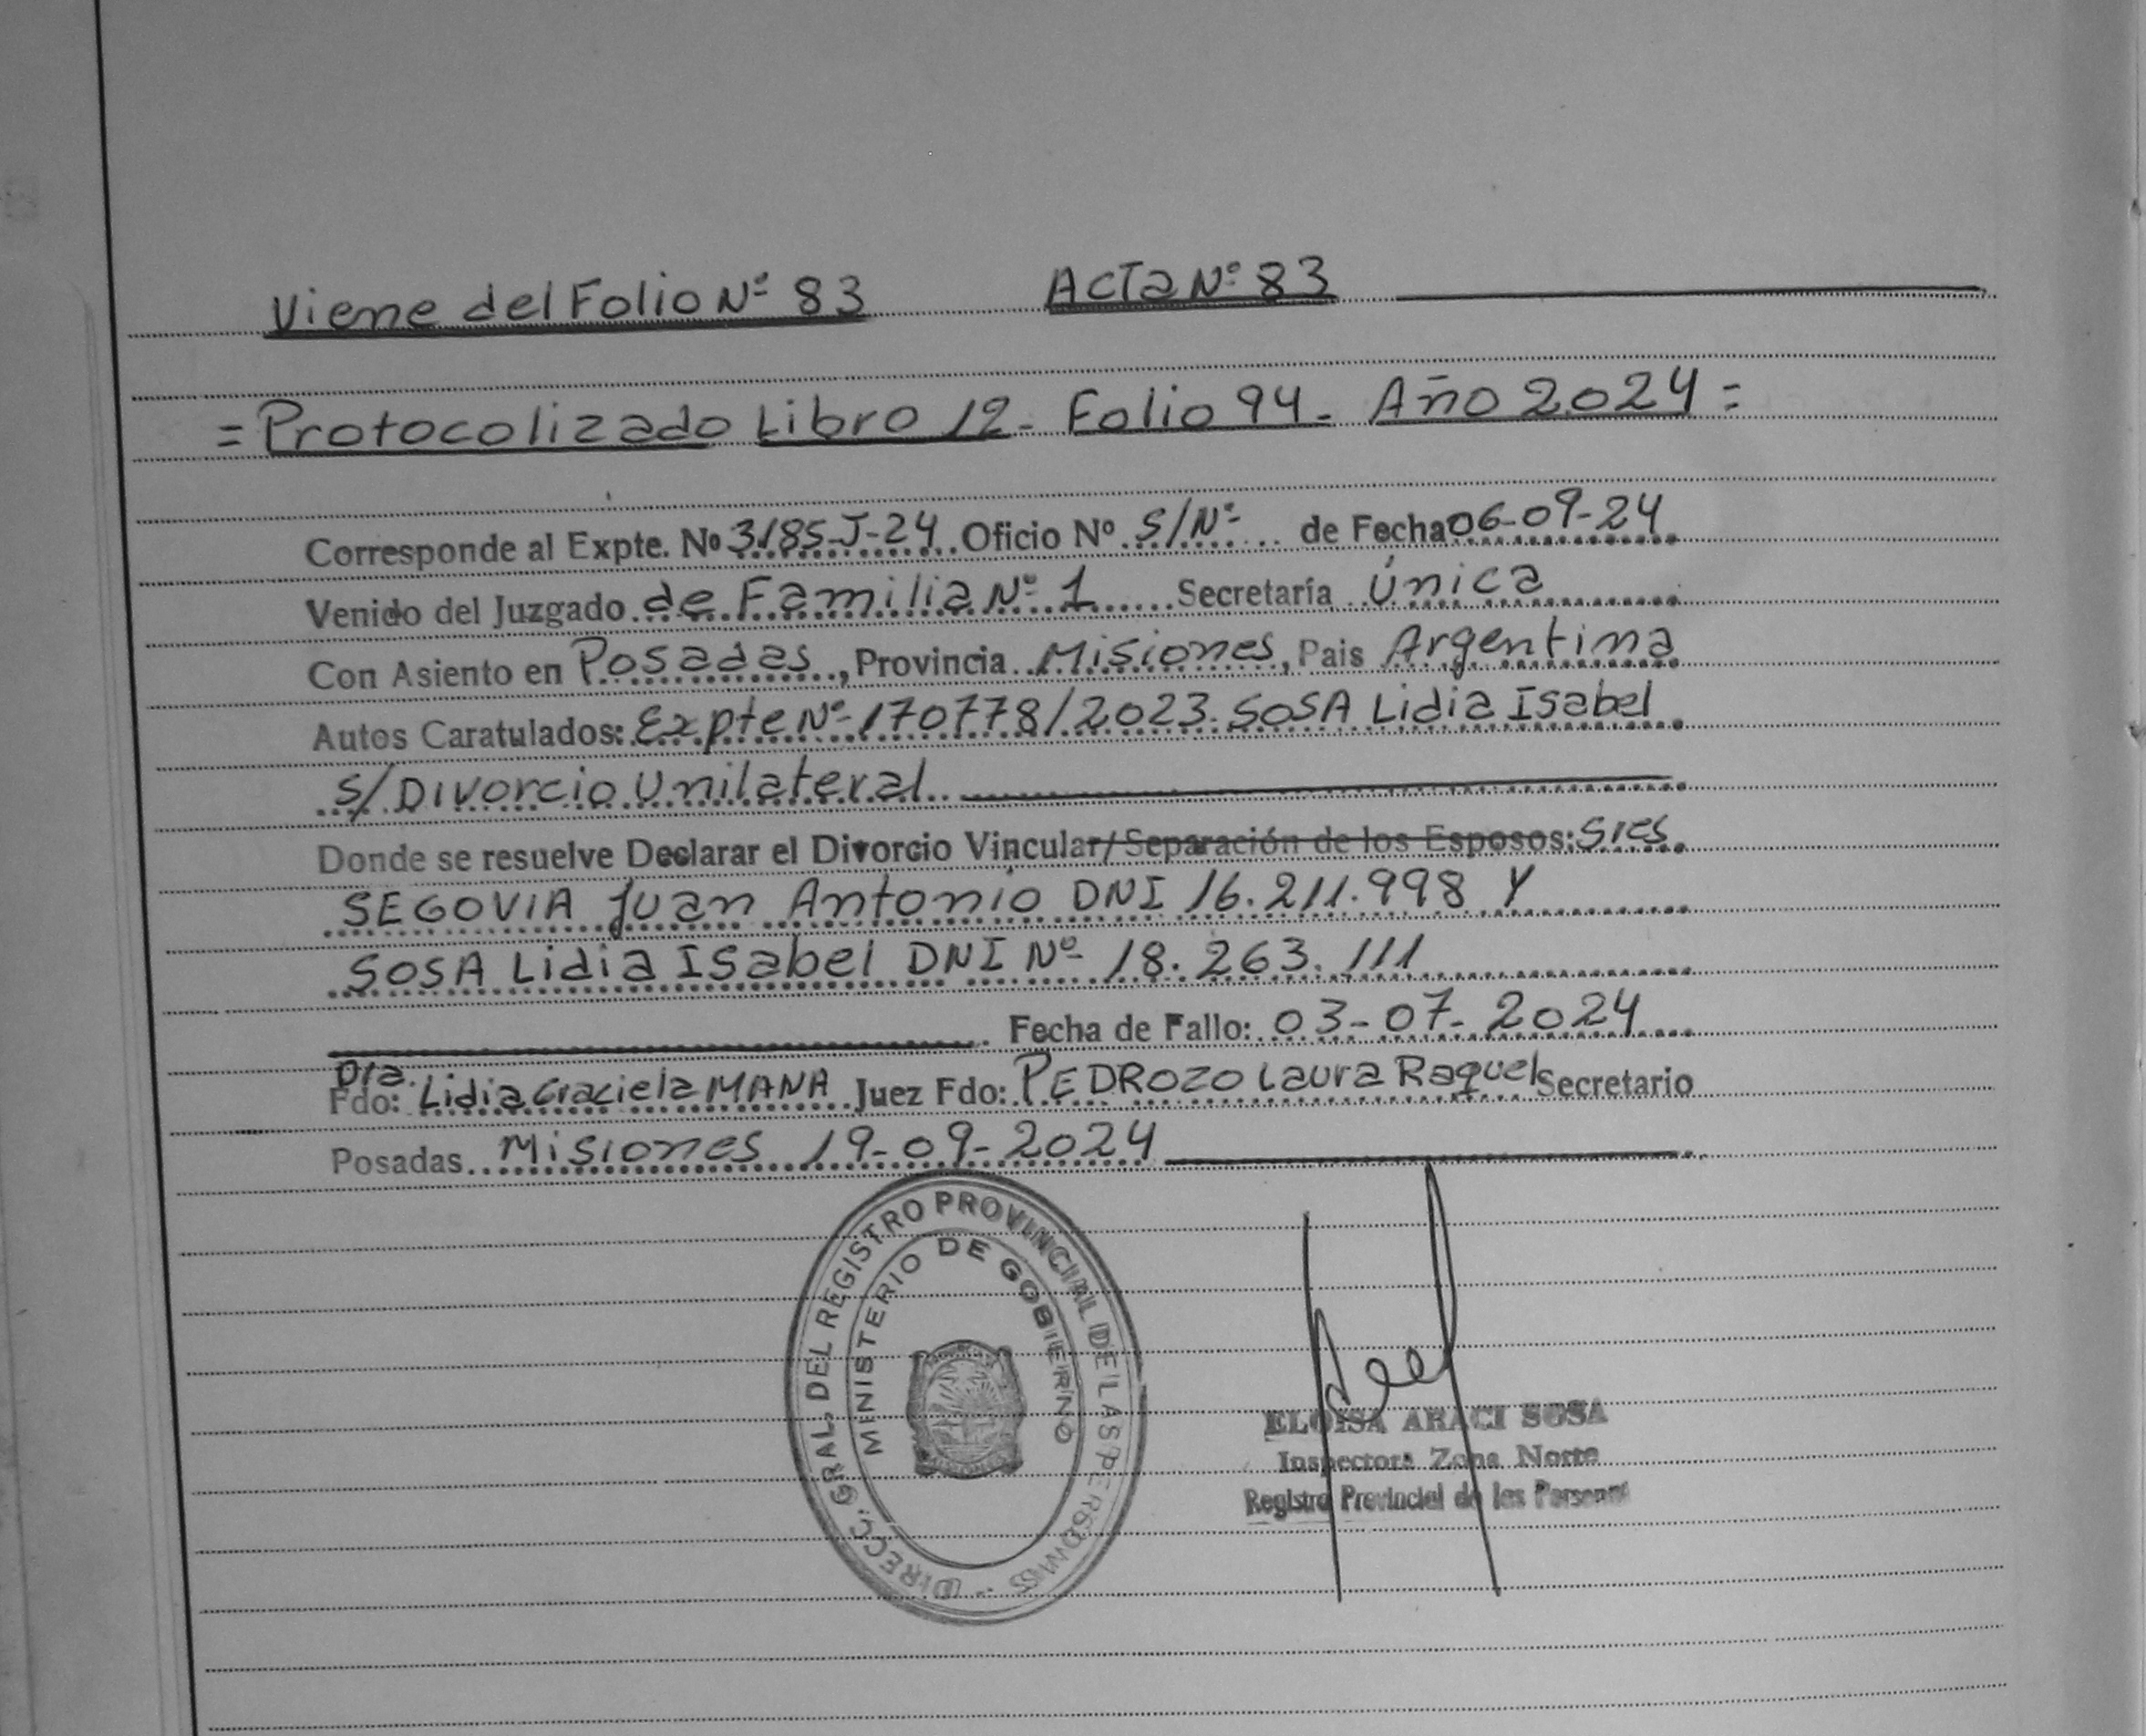 Viene del Folio Nº 83 Acta Nº 83
= Protocolizado Libro 12 - Folio 94 - Año 2024 =
Corresponde al Expte. Nº 3185-J-24 Oficio Nº S/Nº de Fecha 06-09-24
Venido del Juzgado de Familia Nº 1 Secretaría Única
Con Asiento en Posadas, Provincia Misiones, Pais Argentina
Autos Caratulados: Expte Nº 170778/2023. SOSA Lidia Isabel
S/ Divorcio Unilateral
Donde se resuelve Declarar el Divorcio Vincular/ Separación de los Esposos: Sres
SEGOVIA Juan Antonio DNI 16.211.998 Y
SOSA Lidia Isabel DNI Nº 18.263.111
Fecha de Fallo: 03-07-2024
Dra.
Fdo: Lidia Graciela MANA Juez Fdo: PEDROZO Laura Raquel Secretario
Posadas Misiones 19-09-2024
DIRECC. GRAL. DEL REGISTRO PROVINCIAL DE LAS PERSONAS -
MINISTERIO DE GOBIERNO
MISIONES
ELOISA ARACI SOSA
Inspectora Zona Norte
Registro Provincial de las Personas